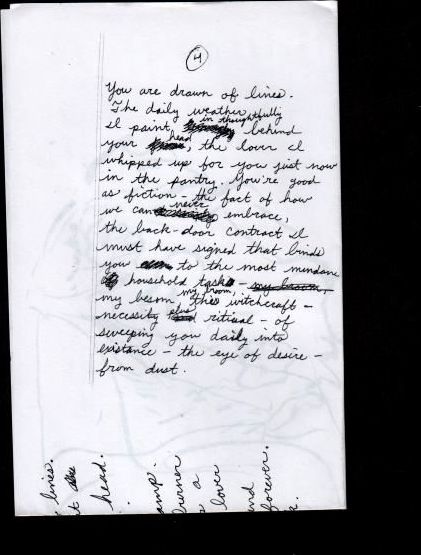 4
You are drawn of lines.
The daily weather
in thoughtfully
I paint behind
head
your, the lover I
whipped up for you just now
in the pantry. You're good
as fiction - the fact of how
never
we can embrace,
the back-door contract I
must have signed that binds
you to the most mundane
household tasks - my broom,
my broom,
my besom, this witchcraft -
plus
necessity ritual - of
sweeping you daily into
existance - the eye of desire -
from dust.
lines.
t
head.
amp.
burner
a
lover
nd
forever.